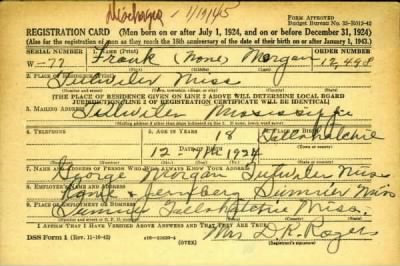 Discharged 1/19/45
FORM APPROVED
Budget Bureau No. 33-R012-42
REGISTRATION CARD (Men born on or after July 1, 1924, and on or before December 31, 1924)
(Also for the registration of men as they reach the 18th anniversary of the date of their birth on or after January 1, 1943.)
SERIAL NUMBER 1. NAME (Print) ORDER NUMBER
W-77 Frank (None) Morgan 12,498
(First) (Middle) (Last)
2. PLACE OF RESIDENCE (Print)
Tutwiler Miss
[THE PLACE OF RESIDENCE GIVEN ON LINE 2 ABOVE WILL DETERMINE LOCAL BOARD
JURISDICTION; LINE 2 OF REGISTRATION CERTIFICATE WILL BE IDENTICAL]
3. MAILING ADDRESS
Tutwiler Mississippi
4. TELEPHONE 5. AGE IN YEARS 6. PLACE OF BIRTH
18 Tallahatchie
DATE OF BIRTH
12 1924
7. NAME AND ADDRESS OF PERSON WHO WILL ALWAYS KNOW YOUR ADDRESS
George Morgan Tutwiler Miss
8. EMPLOYER'S NAME AND ADDRESS
& Sumner Miss
9. PLACE OF EMPLOYMENT OR BUSINESS
Sumner Tallahatchie Miss.
I AFFIRM THAT I HAVE VERIFIED ABOVE ANSWERS AND THAT THEY ARE TRUE.
DSS Form 1 (Rev. 11-16-42) (OVER) Mrs D.K. Rogers
(Registrant's signature)